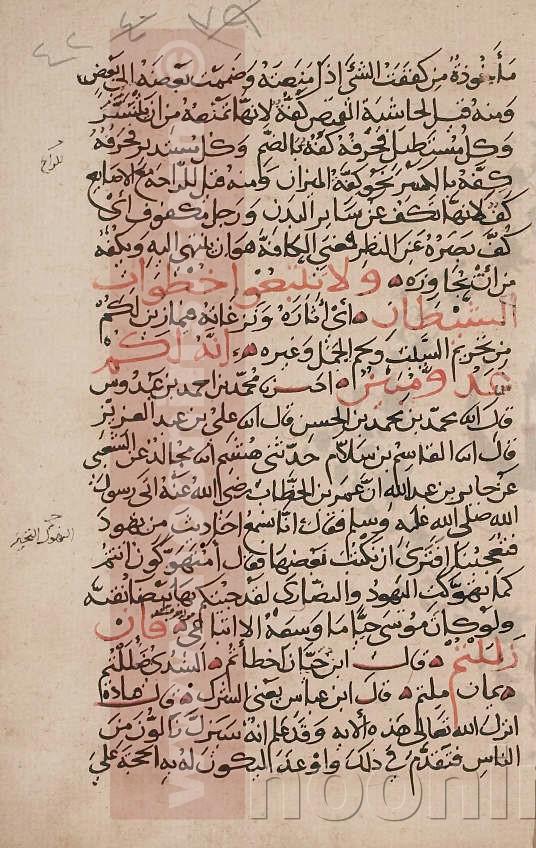 مأخوذة من كففت الشئ اذا منعته وضممت بعضه الى بعض
ومنه قيل لحاشية القميص كفة لانها تمنعه من ان ينتشر
وكل مستطيل فحرفه كفة بالضم وكل مستدير فحرفه
كفة بالكسر نحو كفة الميزان ومنه قيل للراحة مع الاصابع
كف لانها تكف عن ساير البدن ورجل مكفوف اى
كف بصره عن النظر فمعنى الكافة هو ان ينتهى اليه ويكفه
من ان يجاوزه ولا تتبعوا خطوات
الشيطان اى اثاره ونزغاته فيما زين لكم
من تحريم السبت ولحم الجمل وغيره انه لكم
عدو مبين اخبرنى محمد بن احمد بن عبدوس
قال انا محمد بن محمد بن الحسن قال انا على بن عبد العزيز
قال انا القاسم بن سلام حدثنى هشيم انا مجالد عن الشعبى
عن جابر بن عبد الله ان عمر بن الخطاب رضى الله عنه اتى رسول
الله صلى الله عليه وسلم فقال انا نسمع احاديث من يهود
فتعجبنا افترى ان نكتب بعضها فقال امتهوكون انتم
كما تهوكت اليهود والنصارى لقد جئتكم بها بيضا نقية
ولو كان موسى حيا ما وسعه الا اتباعى فان
زللتم قال ابن حيان اخطأتم السدى ضللتم
يمان ملتم قال ابن عباس يعنى الشرك قال قتادة
انزل الله تعالى هذه الاية وقد علم انه سيزل زالون من
الناس فتقدم فى ذلك واوعد ليكون له به الحجة على